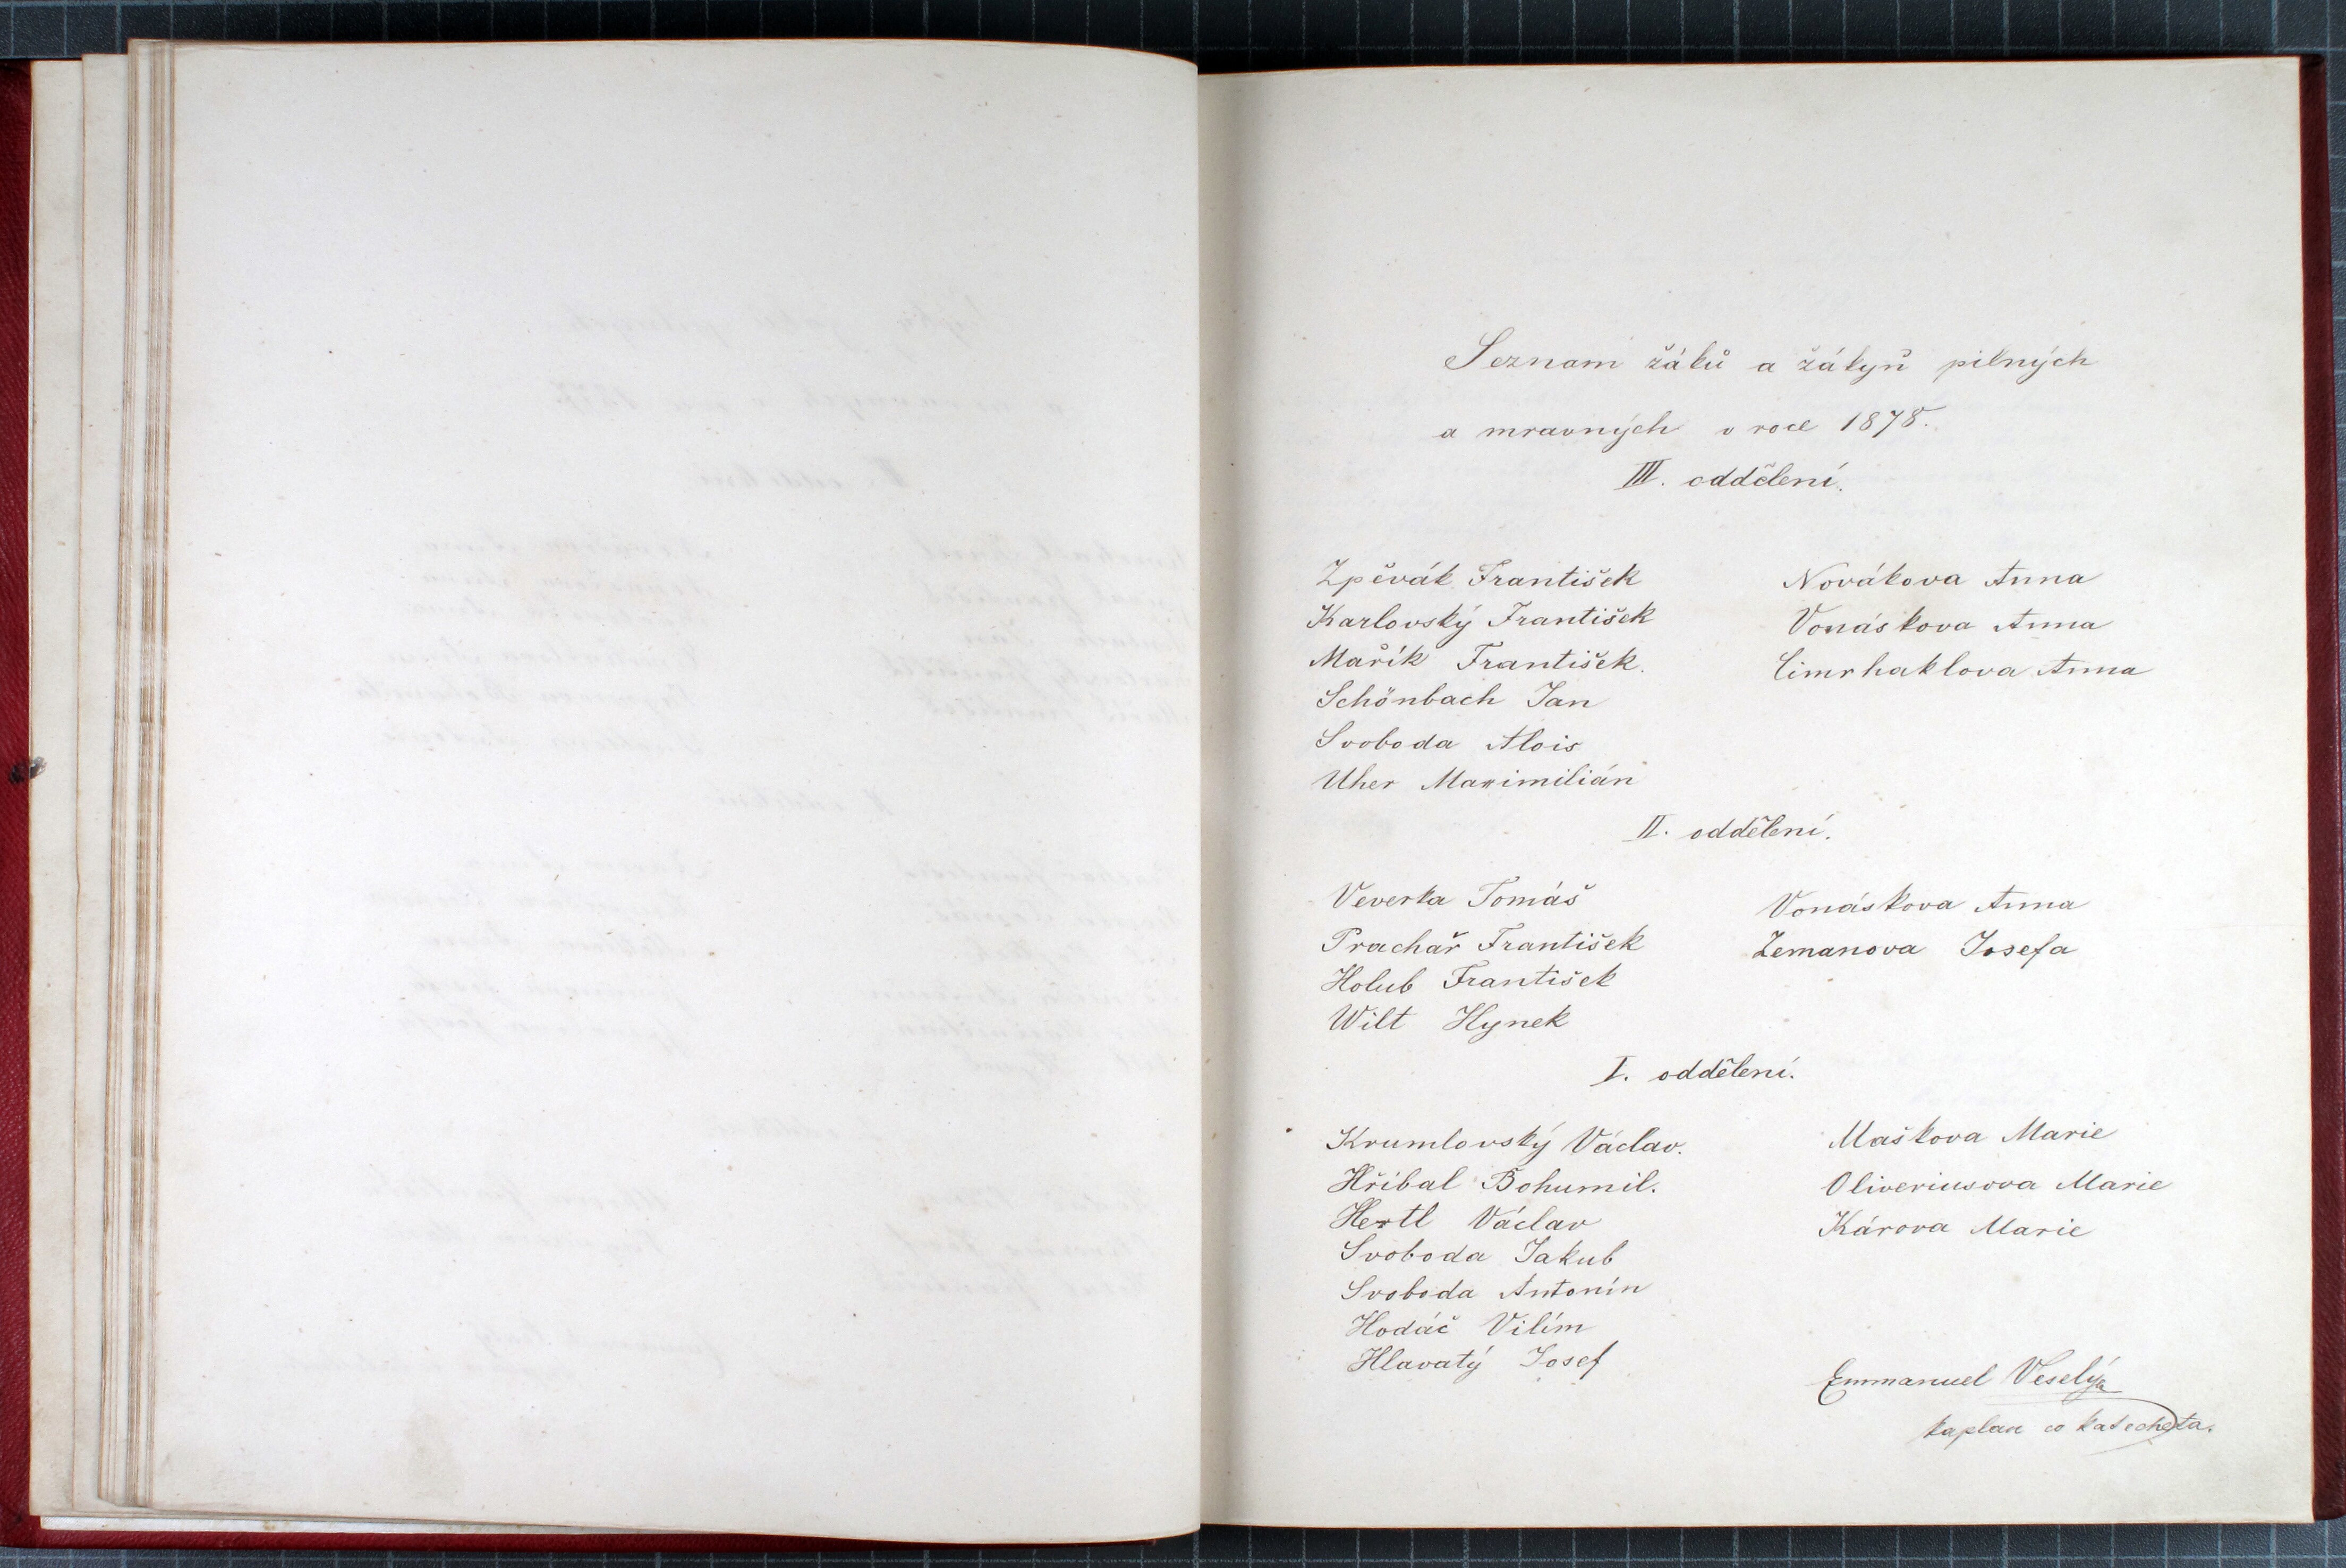 Seznam žáků a žákyň pilných
a mravných v roce 1878.
III. oddělení.
Zpěvák František
Karlovský František
Mařík František.
Schönbach Jan
Svoboda Alois
Uher Maximilián
Novákova Anna
Vonáskova Anna
Cimrhaklova Anna
II. oddělení.
Veverka Tomáš
Prachař František
Holub František
Wilt Hynek
Vonáskova Anna
Zemanova Josefa
I. oddělení.
Krumlovský Václav.
Hřibal Bohumil.
Hertl Václav
Svoboda Jakub
Svoboda Antonín
Hodáč Vilím
Hlavatý Josef
Maškova Marie
Oliveriusova Marie
Károva Marie
Emmanuel Veselý
kaplan co katecheta.